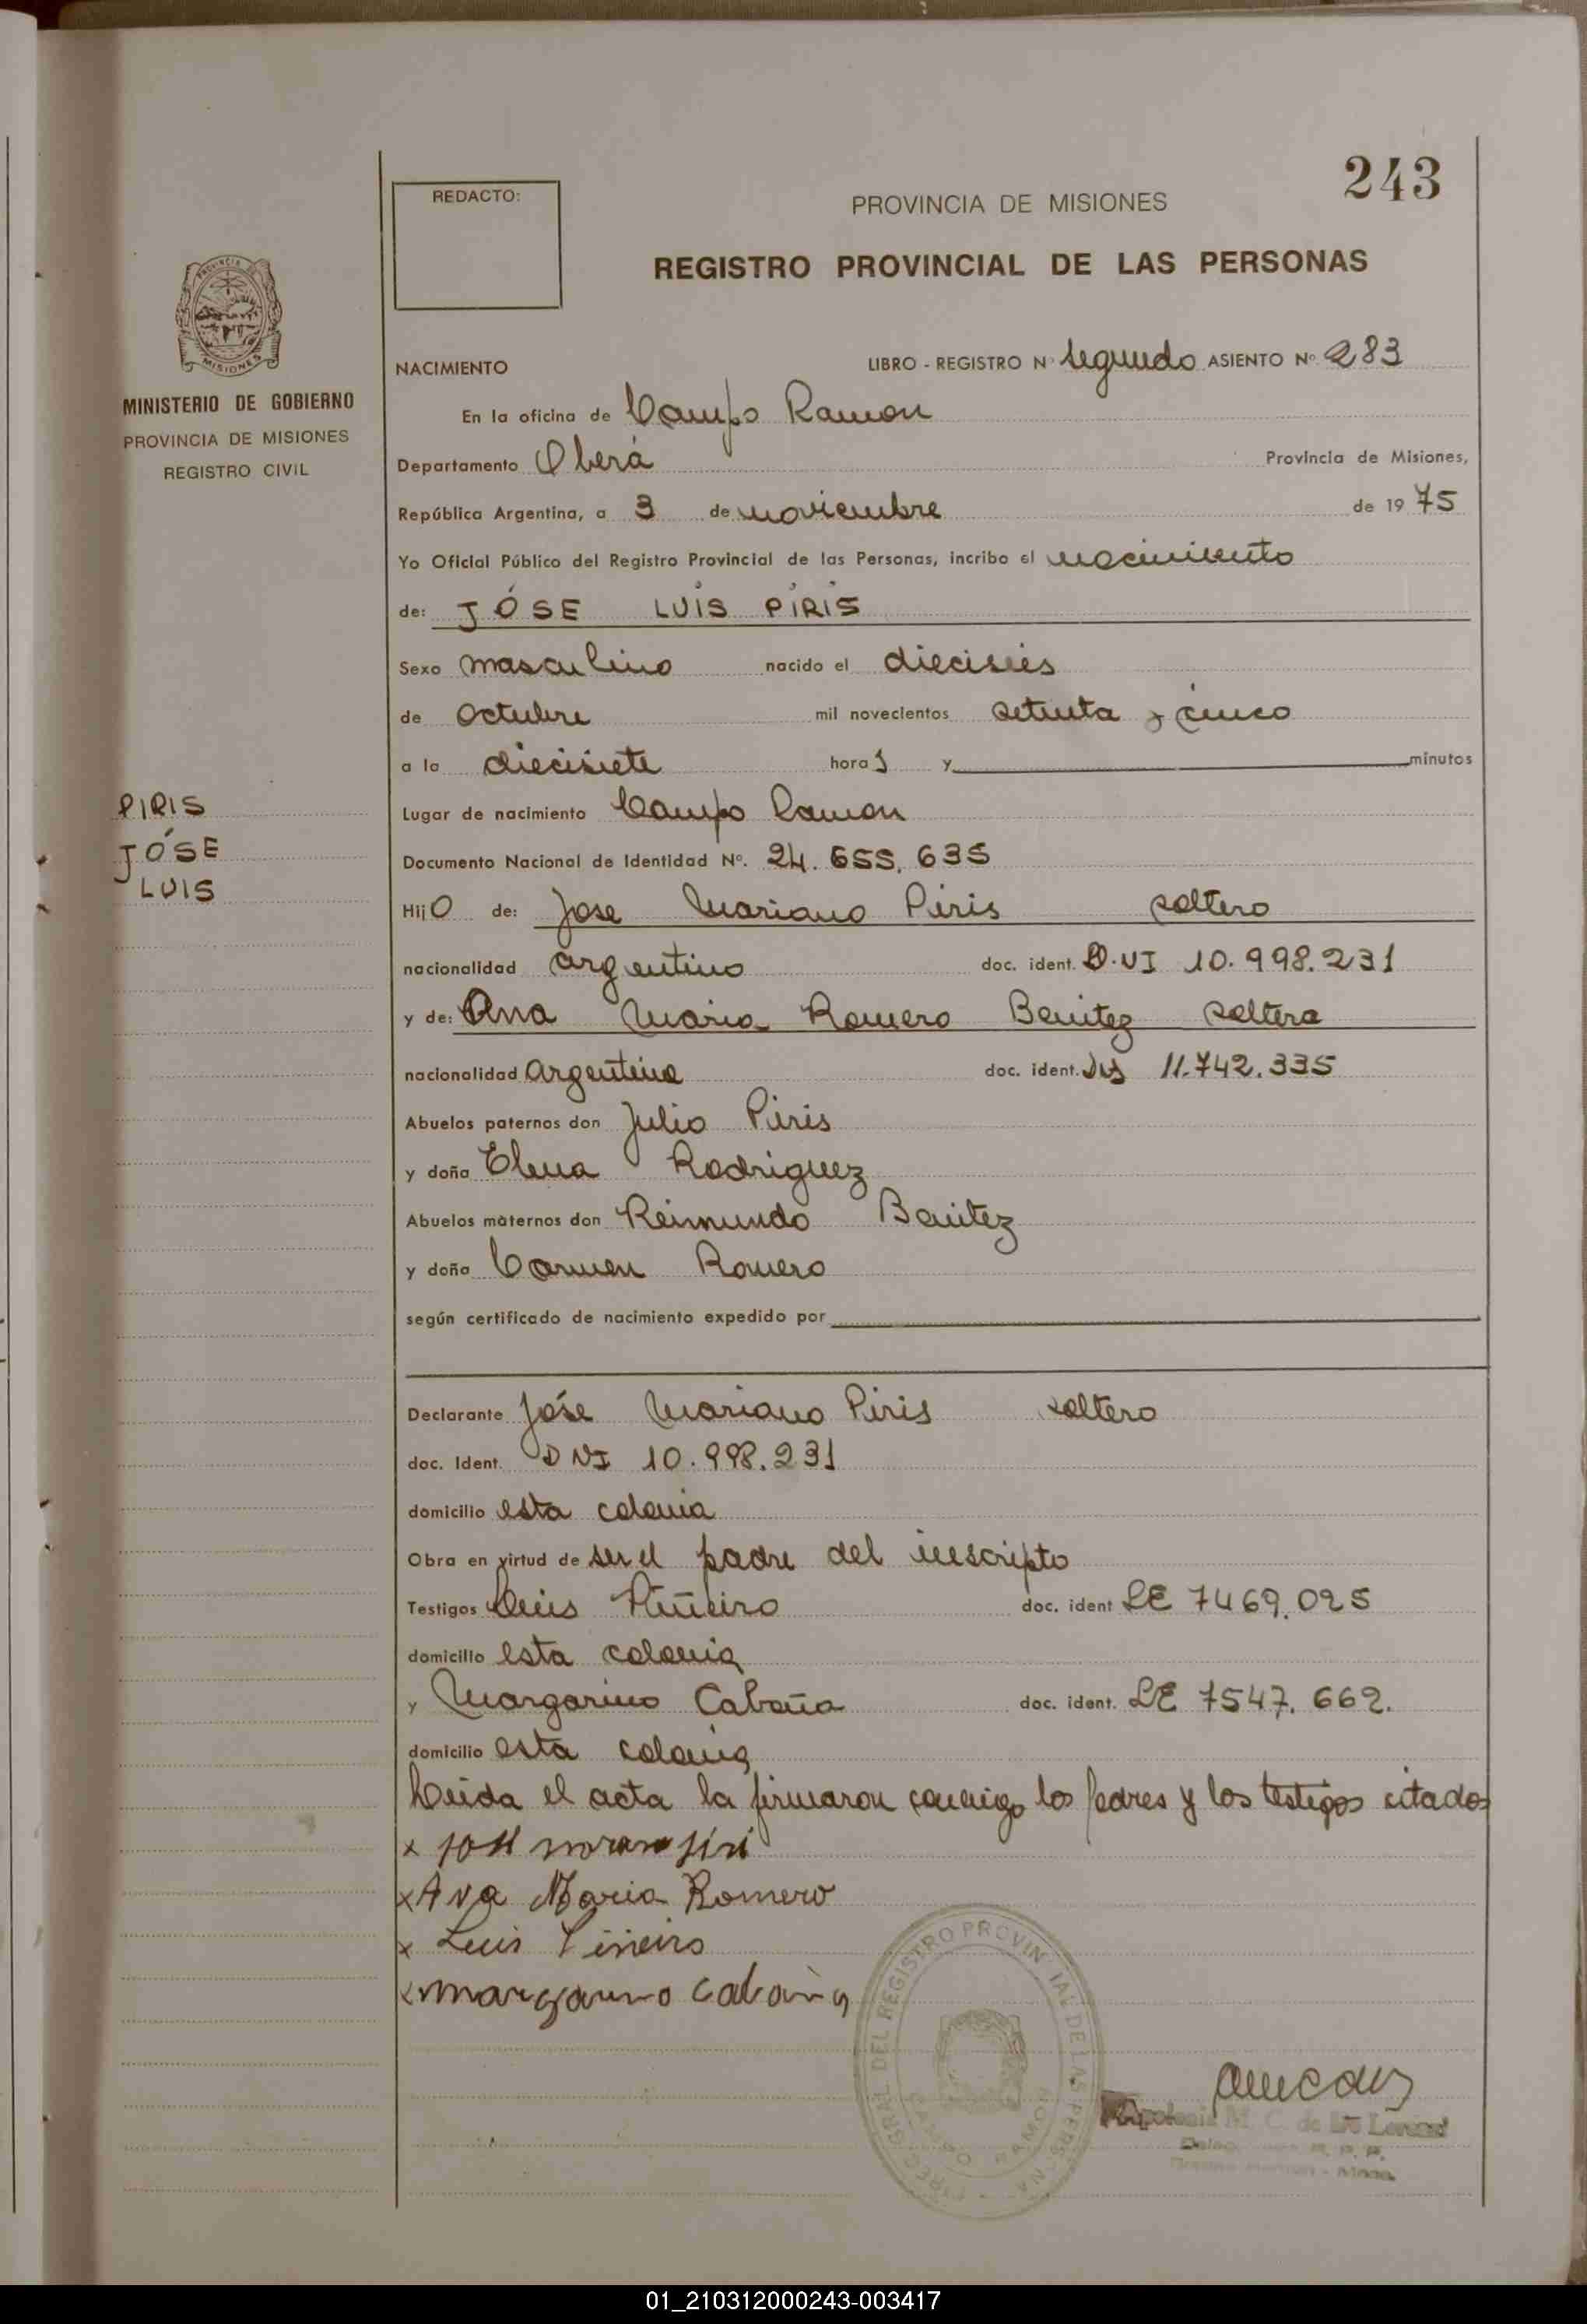 243
REDACTO:
PROVINCIA DE MISIONES
REGISTRO PROVINCIAL DE LAS PERSONAS
MISIONES
MINISTERIO DE GOBIERNO
PROVINCIA DE MISIONES
REGISTRO CIVIL
PIRIS
JÓSE
LUIS
NACIMIENTO LIBRO - REGISTRO Nº segundo ASIENTO Nº 283
En la oficina de Campo Ramon
Departamento Oberá Provincia de Misiones,
República Argentina, a 3 de noviembre de 1975
Yo Oficial Público del Registro Provincial de las Personas, incribo el nacimiento
de: JÓSE LUIS PIRIS
Sexo masculino nacido el dieciseis
de octubre mil novecientos setenta y cinco
a la diecisiete horas y minutos
Lugar de nacimiento Campo Ramon
Documento Nacional de Identidad Nº. 24.655.635
Hijo de: Jose Mariano Piris soltero
nacionalidad argentino doc. ident. D.NI 10.998.231
y de: Ana Maria Romero Benitez soltera
nacionalidad argentina doc. ident. 11.742.335
Abuelos paternos don Julio Piris
y doña Elena Rodriguez
Abuelos maternos don Reimundo Benitez
y doña Carmen Romero
según certificado de nacimiento expedido por
Declarante José Mariano Piris soltero
doc. Ident. DNI 10.998.231
domicilio esta colonia
Obra en virtud de ser el padre del inscripto
Testigos Luis Piñeiro doc. ident LE 7469.025
domicilio esta colonia
y Margarino Cabaña doc. ident. LE 7547.662.
domicilio esta colonia
Leida el acta la firmaron conmigo los padres y los testigos citados
x
x Ana Maria Romero
x Luis Piñeiro
x Margarino Cabaña
DEL REGISTRO PROVINCIAL DE LAS PERSONAS
CAMPO RAMON
Apolonia M. C. de
01_210312000243-003417